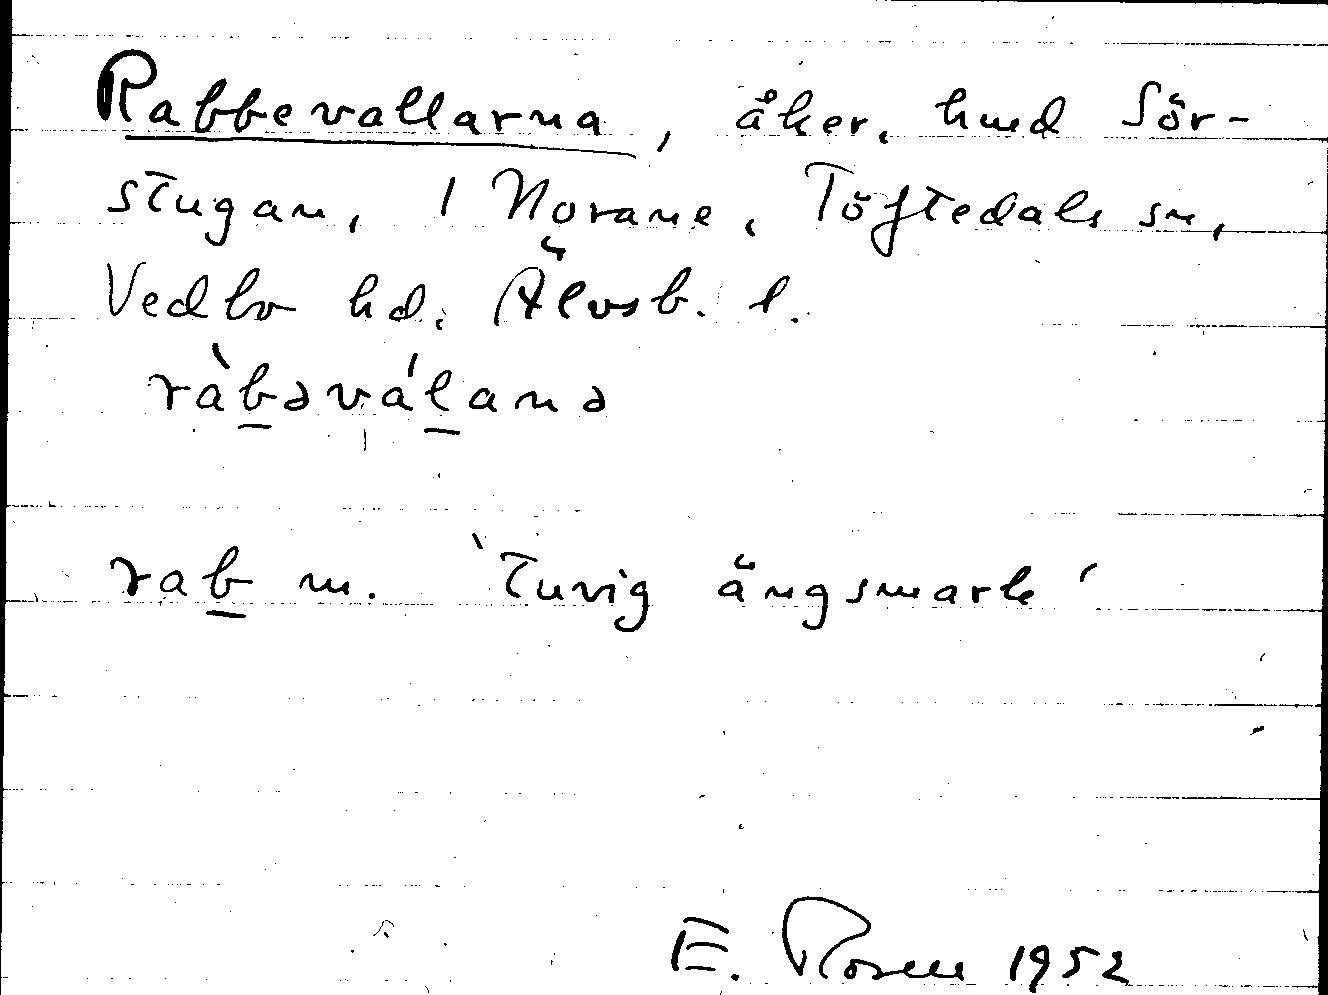 Rabbevallarna, åker, hmd Sör-
stugan, 1 Norane, Töftedals sn,
Vedbo hd. Älvsb. l.
ràb̲əvál̲anə
rab̲ m. `tuvig ängsmark´
E. Rosen 1952